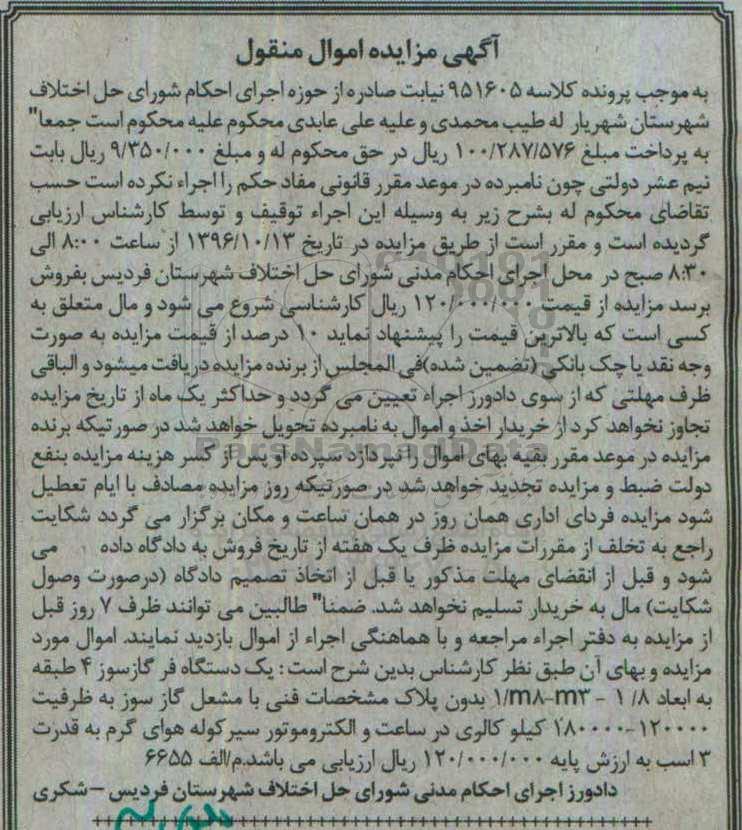 آگهی مزایده اموال منقول
به موجب پرونده کلاسه ۹۵۱۶۰۵ نیابت صادره از حوزه اجرای احکام شورای حل اختلاف
شهرستان شهریار له طیب محمدی و علیه علی عابدی محکوم علیه محکوم است جمعا"
به پرداخت مبلغ ۱۰۰/۲۸۷/۵۷۶ ریال در حق محکوم له و مبلغ ۹/۳۵۰/۰۰۰ ریال بابت
نیم عشر دولتی چون نامبرده در موعد مقرر قانونی مفاد حکم را اجراء نکرده است حسب
تقاضای محکوم له بشرح زیر به وسیله این اجراء توقیف و توسط کارشناس ارزیابی
گردیده است و مقرر است از طریق مزایده در تاریخ ۱۳۹۶/۱۰/۱۳ از ساعت ۸:۰۰ الی
۸:۳۰ صبح در محل اجرای احکام مدنی شورای حل اختلاف شهرستان فردیس بفروش
برسد مزایده از قیمت ۱۲۰/۰۰۰/۰۰۰ ریال کارشناسی شروع می شود و مال متعلق به
کسی است که بالاترین قیمت را پیشنهاد نماید ۱۰ درصد از قیمت مزایده به صورت
وجه نقد یا چک بانکی (تضمین شده)فی المجلس از برنده مزایده دریافت میشود و الباقی
ظرف مهلتی که از سوی دادورز اجراء تعیین می گردد و حداکثر یک ماه از تاریخ مزایده
تجاوز نخواهد کرد از خریدار اخذ و اموال به نامبرده تحویل خواهد شد در صورتیکه برنده
مزایده در موعد مقرر بقیه بهای اموال را نپردازد سپرده او پس از کسر هزینه مزایده بنفع
دولت ضبط و مزایده تجدید خواهد شد در صورتیکه روز مزایده مصادف با ایام تعطیل
شود مزایده فردای اداری همان روز در همان ساعت و مکان برگزار می گردد شکایت
راجع به تخلف از مقررات مزایده ظرف یک هفته از تاریخ فروش به دادگاه داده می
شود و قبل از انقضای مهلت مذکور یا قبل از اتخاذ تصمیم دادگاه (درصورت وصول
شکایت) مال به خریدار تسلیم نخواهد شد. ضمنا" طالبین می توانند ظرف ۷ روز قبل
از مزایده به دفتر اجراء مراجعه و با هماهنگی اجراء از اموال بازدید نمایند. اموال مورد
مزایده و بهای آن طبق نظر کارشناس بدین شرح است : یک دستگاه فر گازسوز ۴ طبقه
به ابعاد ۱/۸ - ۱/m۸-m۳ بدون پلاک مشخصات فنی با مشعل گاز سوز به ظرفیت
۱۸۰۰۰۰-۱۲۰۰۰۰ کیلو کالری در ساعت و الکتروموتور سیرکوله هوای گرم به قدرت
۳ اسب به ارزش پایه ۱۲۰/۰۰۰/۰۰۰ ریال ارزیابی می باشد.م/الف ۶۶۵۵
دادورز اجرای احکام مدنی شورای حل اختلاف شهرستان فردیس – شکری
ParsNamadData